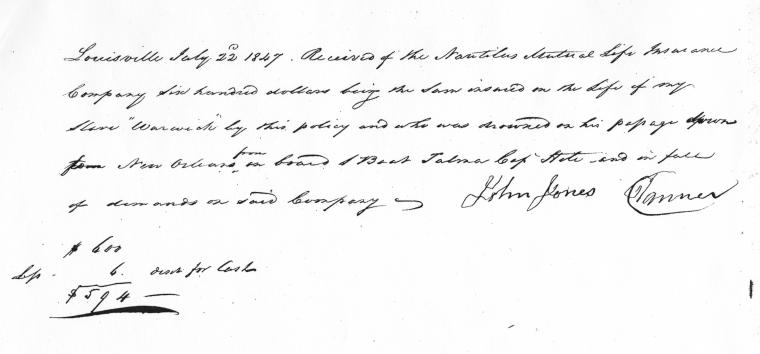 Louisville July 22d 1847. Received of the Nautilus Mutual Life Insurance
Company Six hundred dollars being the Sum insured on the Life of my
Slave "Warwick" by this policy and who was drowned on his passage down
from New Orleans from on board S Boat Talma Capt and in full
of demands on said Company John Jones Tanner
$ 600
Less 6. disct for Cash
$ 594 —